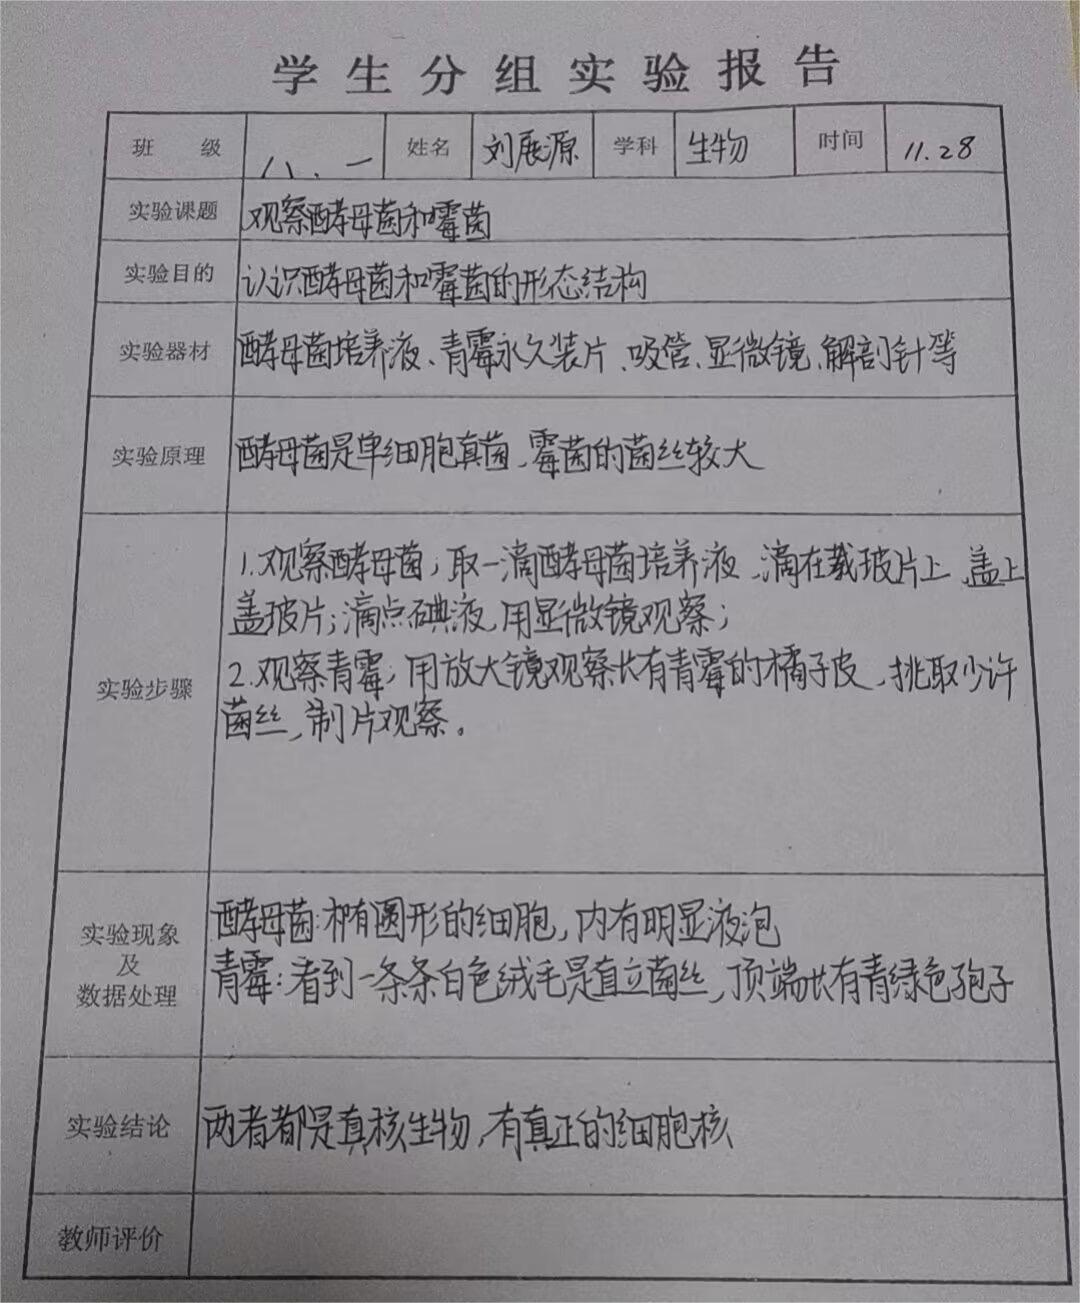 学生分组实验报告
班 级 八、一 姓名 刘展源 学科 生物 时间 11.28
实验课题 观察酵母菌和霉菌
实验目的 认识酵母菌和霉菌的形态结构
实验器材 酵母菌培养液、青霉永久装片、吸管、显微镜、解剖针等
实验原理 酵母菌是单细胞真菌,霉菌的菌丝较大
实验步骤
1.观察酵母菌;取一滴酵母菌培养液,滴在载玻片上,盖上
盖玻片;滴点碘液,用显微镜观察;
2.观察青霉;用放大镜观察长有青霉的橘子皮,挑取少许
菌丝,制片观察。
实验现象
及
数据处理
酵母菌:椭圆形的细胞,内有明显液泡
青霉:看到一条条白色绒毛是直立菌丝,顶端长有青绿色孢子
实验结论 两者都是真核生物,有真正的细胞核
教师评价